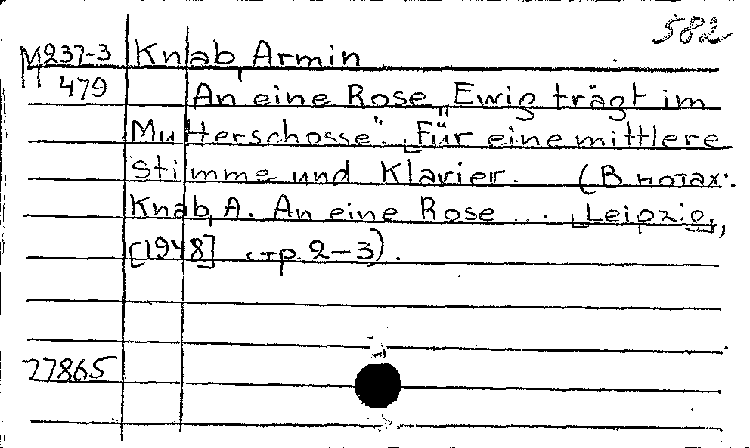 582
М237-3 Knab, Armin
479 An eine Rose „Ewig trägt im
Mutterschosse". [Für eine mittlere
Stimme und Klavier. (В нотах:
Knab, A. An eine Rose ... [Leipzig,
[1948] стр. 2-3).
77865